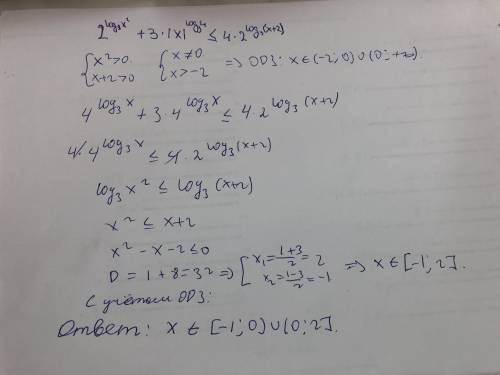 2^{log_3 x^2} + 3·|x|^{log_3 4} ≤ 4·2^{log_3(x+2)}
{x^2>0 x+2>0 {x≠0 x>-2 => ОДЗ: x∈(-2;0)∪(0;+∞).
4^{log_3 x} + 3·4^{log_3 x} ≤ 4·2^{log_3(x+2)}
4·4^{log_3 x} ≤ 4·2^{log_3(x+2)}
log_3 x^2 ≤ log_3(x+2)
x^2 ≤ x+2
x^2 - x - 2 ≤ 0
D = 1+8 = 3^2 => [x_1 = \frac{1+3}{2} = 2 x_2 = \frac{1-3}{2} = -1 => x∈[-1;2].
С учётом ОДЗ:
Ответ: x ∈ [-1;0)∪(0;2].